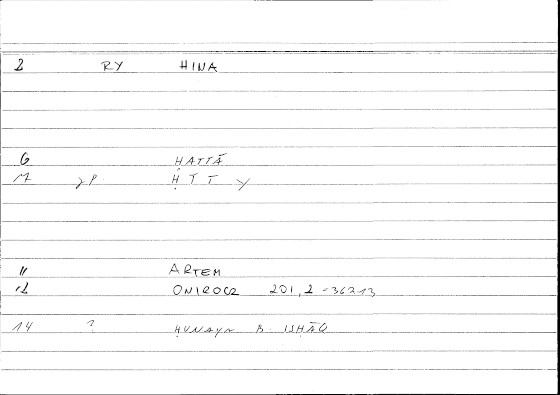 2 RY HINA
6 ḤATTĀ
17 γρ ḤTTY
11 ARTEM
12 ONIROCR 201,2-36213
14 ? ḤUNAYN B. ISḤĀQ